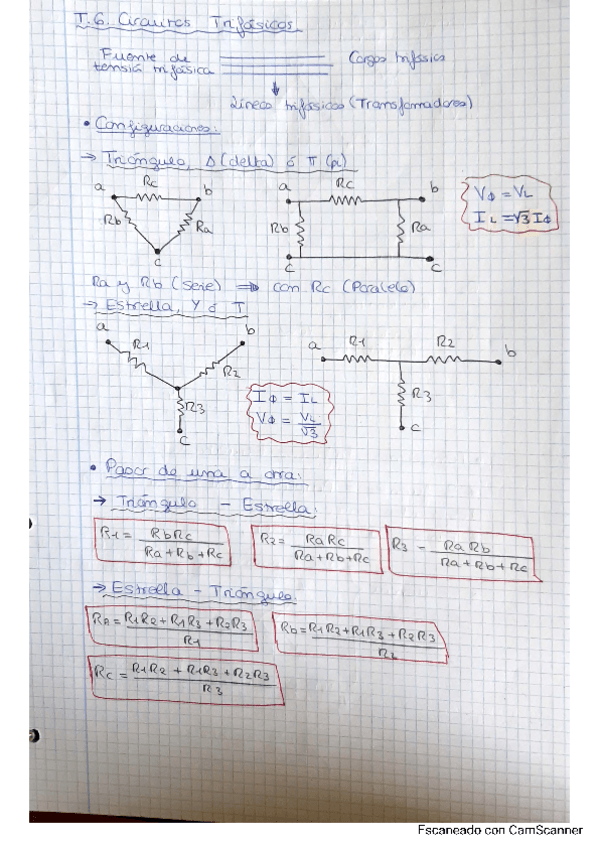 T.6. Circuitos Trifásicos
Fuente de tensión trifásica
Cargas trifásica
Líneas trifásicas (Transformadores)
• Configuraciones:
→ Triángulo, Δ (delta) ó π (pi)
a Rc b
Rb Ra
c
a Rc b
Rb Ra
c c
VΦ = VL
IL = √3 IΦ
Ra y Rb (Serie) ⇒ con Rc (Paralelo)
→ Estrella, Y ó T
a R1 b
R2
R3
c
a R1 R2 b
R3
c
IΦ = IL
VΦ = VL/√3
• Pasar de una a otra:
→ Triángulo - Estrella:
R1 = RbRc/(Ra+Rb+Rc)
R2 = RaRc/(Ra+Rb+Rc)
R3 = RaRb/(Ra+Rb+Rc)
→ Estrella - Triángulo:
Ra = (R1R2 + R1R3 + R2R3)/R1
Rb = (R1R2 + R1R3 + R2R3)/R2
Rc = (R1R2 + R1R3 + R2R3)/R3
Escaneado con CamScanner